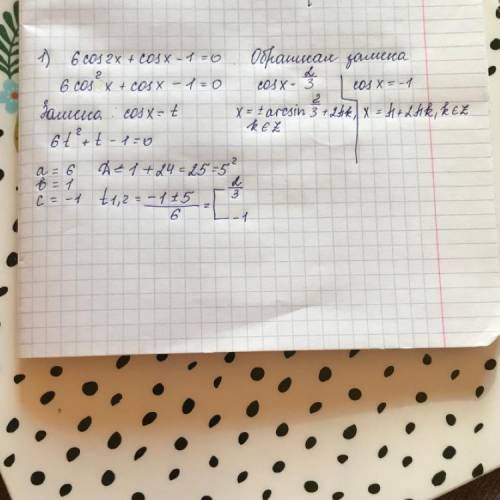 1) 6cos2x + cosx - 1 = 0
6cos²x + cosx - 1 = 0
Замена: cosx = t
6t² + t - 1 = 0
a = 6 D = 1 + 24 = 25 = 5²
b = 1
c = -1 t1,2 = (-1 ± 5)/6 = [ 2/3
-1
Обратная замена
cosx = 2/3 | cosx = -1
x = ± arcsin 2/3 + 2πk, | x = π + 2πk, k ∈ Z
k ∈ Z